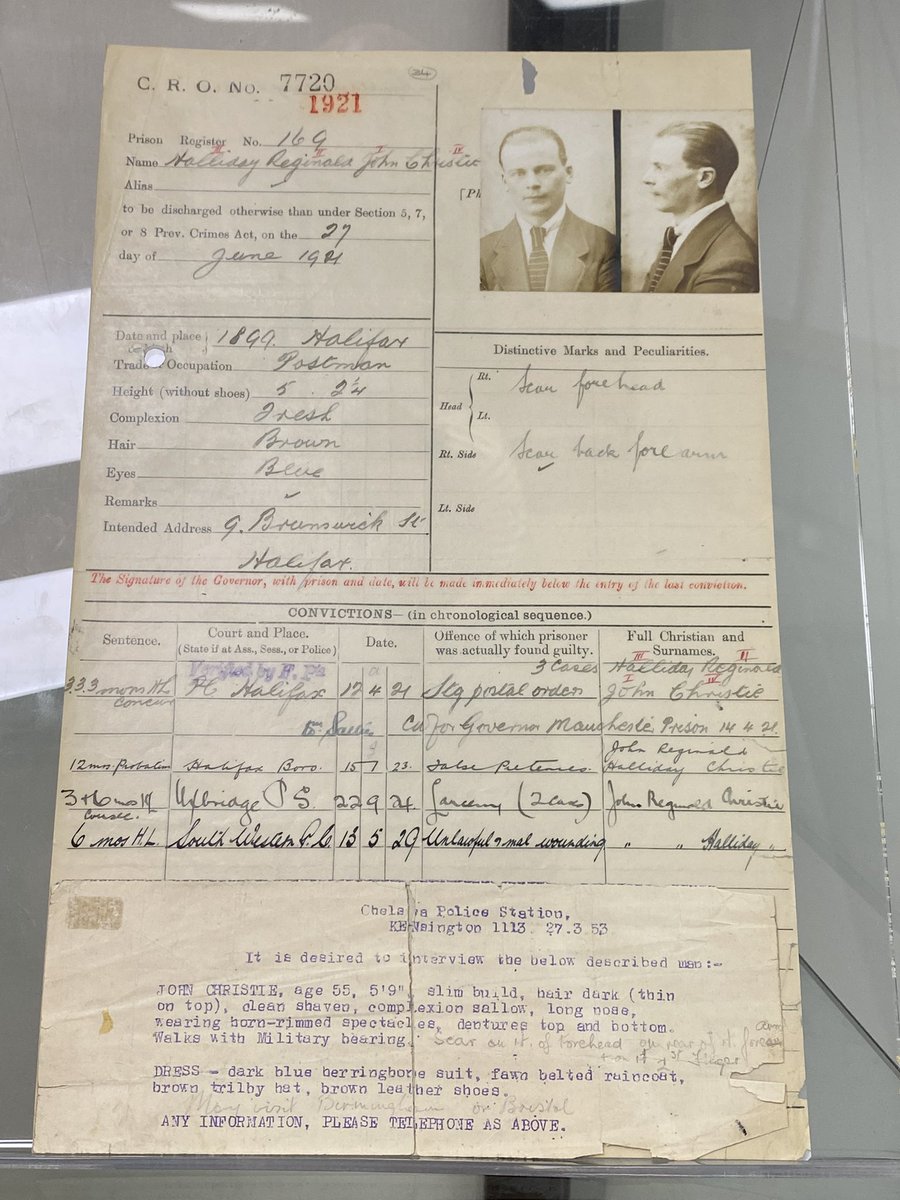 C. R. O. No. 7720
1921
Prison Register No. 169
Name Halliday Reginald John Christie
III II I IV
Alias
to be discharged otherwise than under Section 5, 7,
or 8 Prev. Crimes Act, on the 27
day of June 1921
[Ph
Date and place
1899 Halifax
Trade Occupation Postman
Height (without shoes) 5
Complexion Fresh
Hair Brown
Eyes Blue
Remarks
Intended Address 9. Brunswick St
Halifax.
Distinctive Marks and Peculiarities.
Head
Rt. Scar forehead
Lt.
Rt. Side Scar back fore arm
Lt. Side
The Signature of the Governor, with prison and date, will be made immediately below the entry of the last conviction.
CONVICTIONS—(in chronological sequence.)
Sentence.
Court and Place.
(State if at Ass., Sess., or Police)
Date.
Offence of which prisoner
was actually found guilty.
Full Christian and
Surnames.
Verified by F. P's
3 Cases
III II
Halliday Reginald
3.3.3 mons HL
concur
PC Halifax 12 4 21
Stg postal orders
I IV
John Christie
for Governor Manchester Prison 14 4 21.
12 mos. Probation Halifax Boro. 15 1 23. False Pretences.
John Reginald
Halliday Christie
3+6 mos Hl
consec.
Uxbridge P S. 22 9 24. Larceny (2 Cases) John Reginald Christie
6 mos H.L. South Western P.C. 13 5 29 Unlawful & mal wounding " " Halliday "
Chelsea Police Station,
KENsington 1113. 27.3.53
It is desired to interview the below described man:-
JOHN CHRISTIE, age 55, 5'9", slim build, hair dark (thin
on top), clean shaven, complexion sallow, long nose,
wearing horn-rimmed spectacles, dentures top and bottom.
Walks with Military bearing. Scar on rt. of forehead on rear of rt. forearm
DRESS - dark blue herringbone suit, fawn belted raincoat,
brown trilby hat, brown leather shoes.
May visit Birmingham or Bristol
ANY INFORMATION, PLEASE TELEPHONE AS ABOVE.